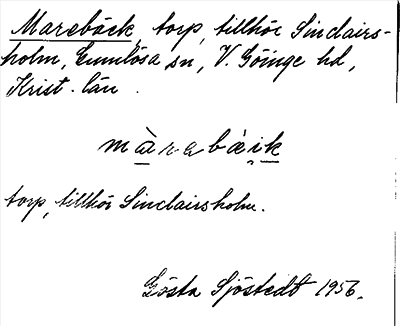 Marebäck, torp, tillhör Sinclairs-
holm, Gumlösa sn, V. Göinge hd,
Krist. län.
màrabái̯k
torp, tillhör Sinclairsholm.
Gösta Sjöstedt 1956.